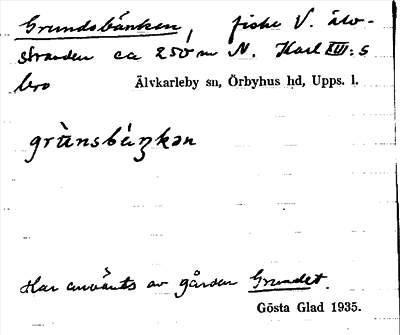 Grundsbänken, fiske V. älv-
stranden ca 250 m N. Karl XIII:s
bro Älvkarleby sn, Örbyhus hd, Upps. l.
grùnsbáŋkən
Har använts av gården Grundet.
Gösta Glad 1935.